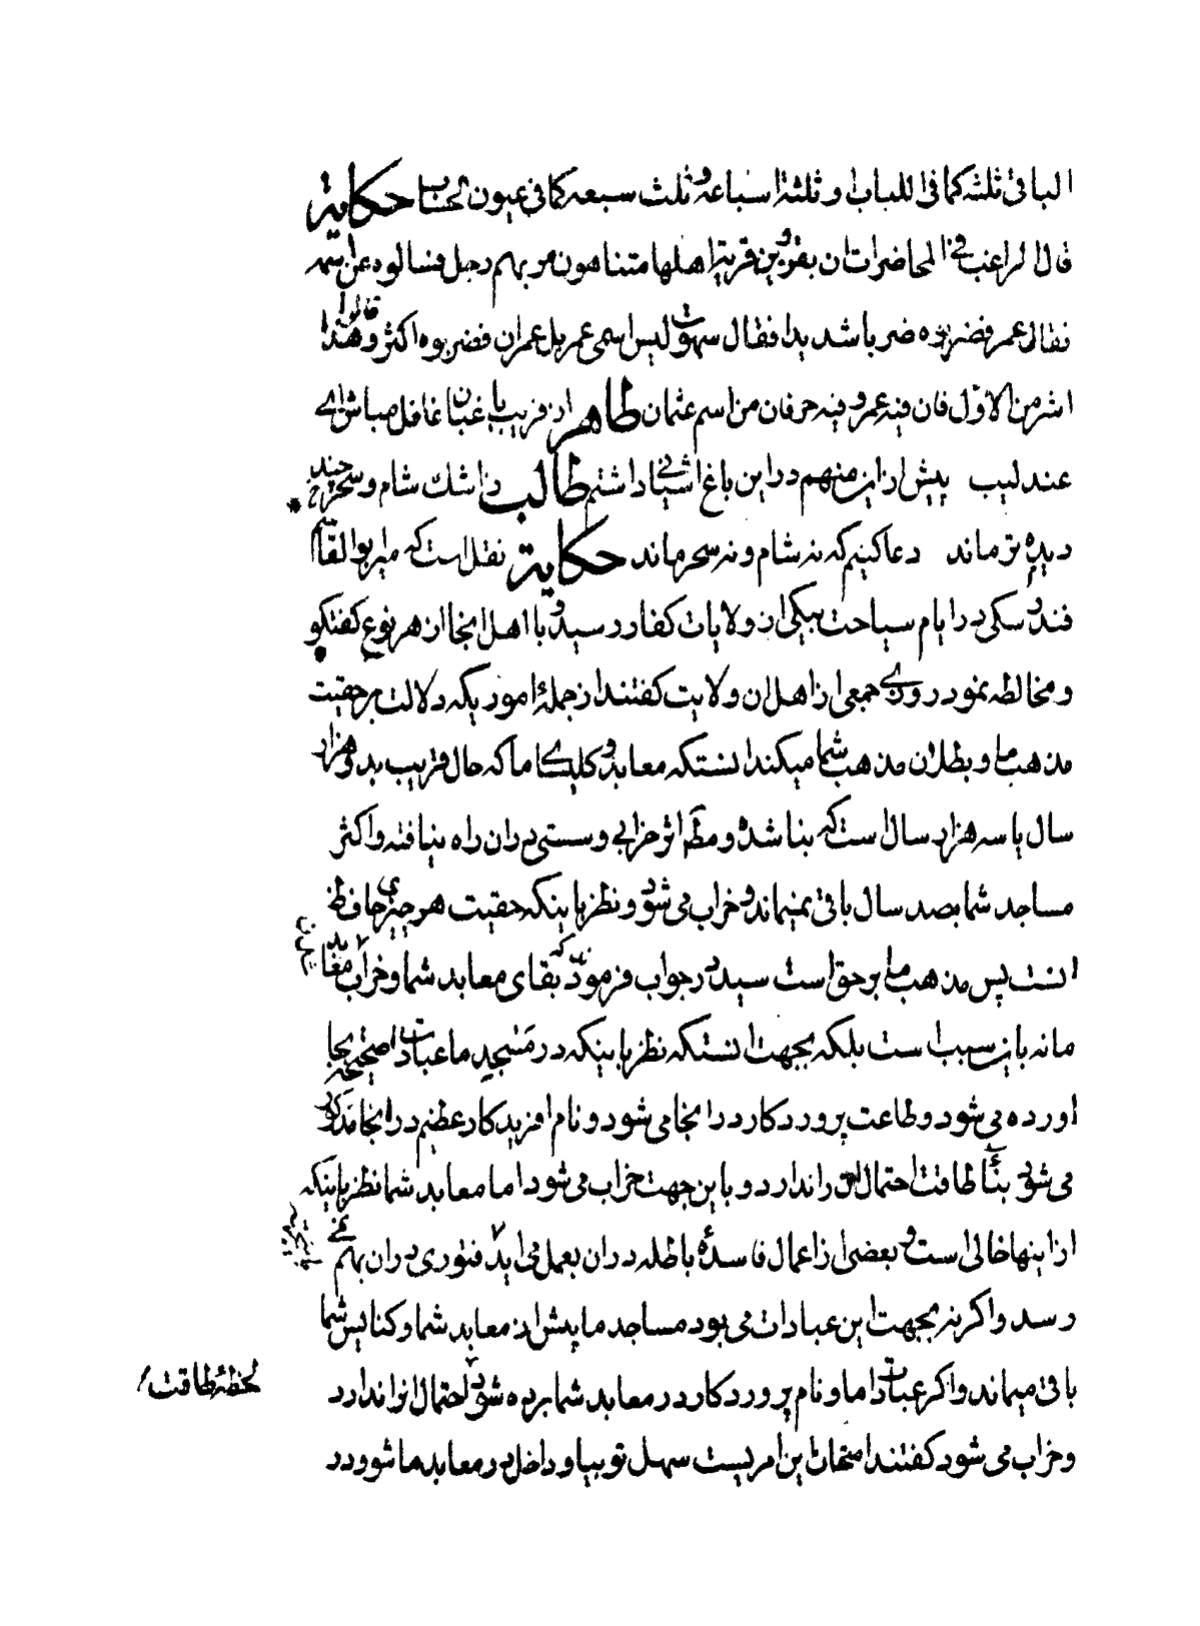 الباقی ثلثه کما فی اللباب او ثلثة اسباعه و ثلث سبعه کما فی عیون الحساب حکایة
قال الراغب فی المحاضرات ان بقزوین قریة اهلها متناهون مر بهم رجل فسالوه عن اسمه
فقال عمر فضربوه ضربا شدیدا فقال سهوت لیس اسمی عمر بل عمران فضربوه اکثر و قالوا هذا
اشر من الاول فان فیه عمر و فیه حرفان من اسم عثمان طاهر از فریب باغبان غافل مباش ای
عندلیب پیش ازاین منهم دراین باغ اشیانی داشتم طالب زاشک شام و سحر چند
دیده تر ماند دعا کنیم که نه شام و نه سحر ماند حکایة نقل است که میر ابو القاسم
فندرسکی در ایام سیاحت بیکی از ولایات کفار رسید و با اهل انجا از هر نوع گفتگو
و مخالطه نمود روزی جمعی از اهل ان ولایت گفتند از جملهٔ اموریکه دلالت بر حقیت
مذهب ما و بطلان مذهب شما میکند انستکه معابد و کلیسای ما که حال قریب بدو هزار
سال یا سه هزار سال است که بنا شده و مطلقا اثر خرابی و سستی در ان راه نیافته و اکثر
مساجد شما بصد سال باقی نمیماند و خراب می شود و نظر باینکه حقیت هر چیزی حافظ
انست پس مذهب ما بر حق است سید در جواب فرمود که بقای معابد شما و خراب
ما نه باین سبب است بلکه بجهت انستکه نظر باینکه در مسجد ما عبادات صحیحه بجا
اورده می شود و طاعت پروردکار در انجا می شود و نام افریدکار عظیم در انجا مذکور
می شود بنا طاقت احتمال ان را ندارد و باین جهت خراب می شود اما معابد شما نظر باینکه
از اینها خالی است و بعضی از اعمال فاسدهٔ باطله در ان بعمل می اید فتوری در ان بهم نمی
رسد و اکر نه بجهت این عبادات می بود مساجد ما پیش از معابد شما و کنایس شما
باقی میماند و اکر عبادات ما و نام پروردکار در معابد شما برده شود لحظهٔ طاقت احتمال انرا ندارد
و خراب می شود کفتند امتحان این امریست سهل تو بیا و داخل در معابد ما شو و در